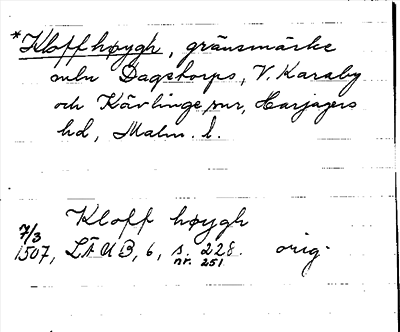 *Kloffhøygh, gränsmärke
mln Dagstorps, V. Karaby
och Kävlinge snr, Harjagers
hd, Malm. l.
Kloff høygh
7/3
1507, LÄUB, 6, s. 228. orig.
nr. 251